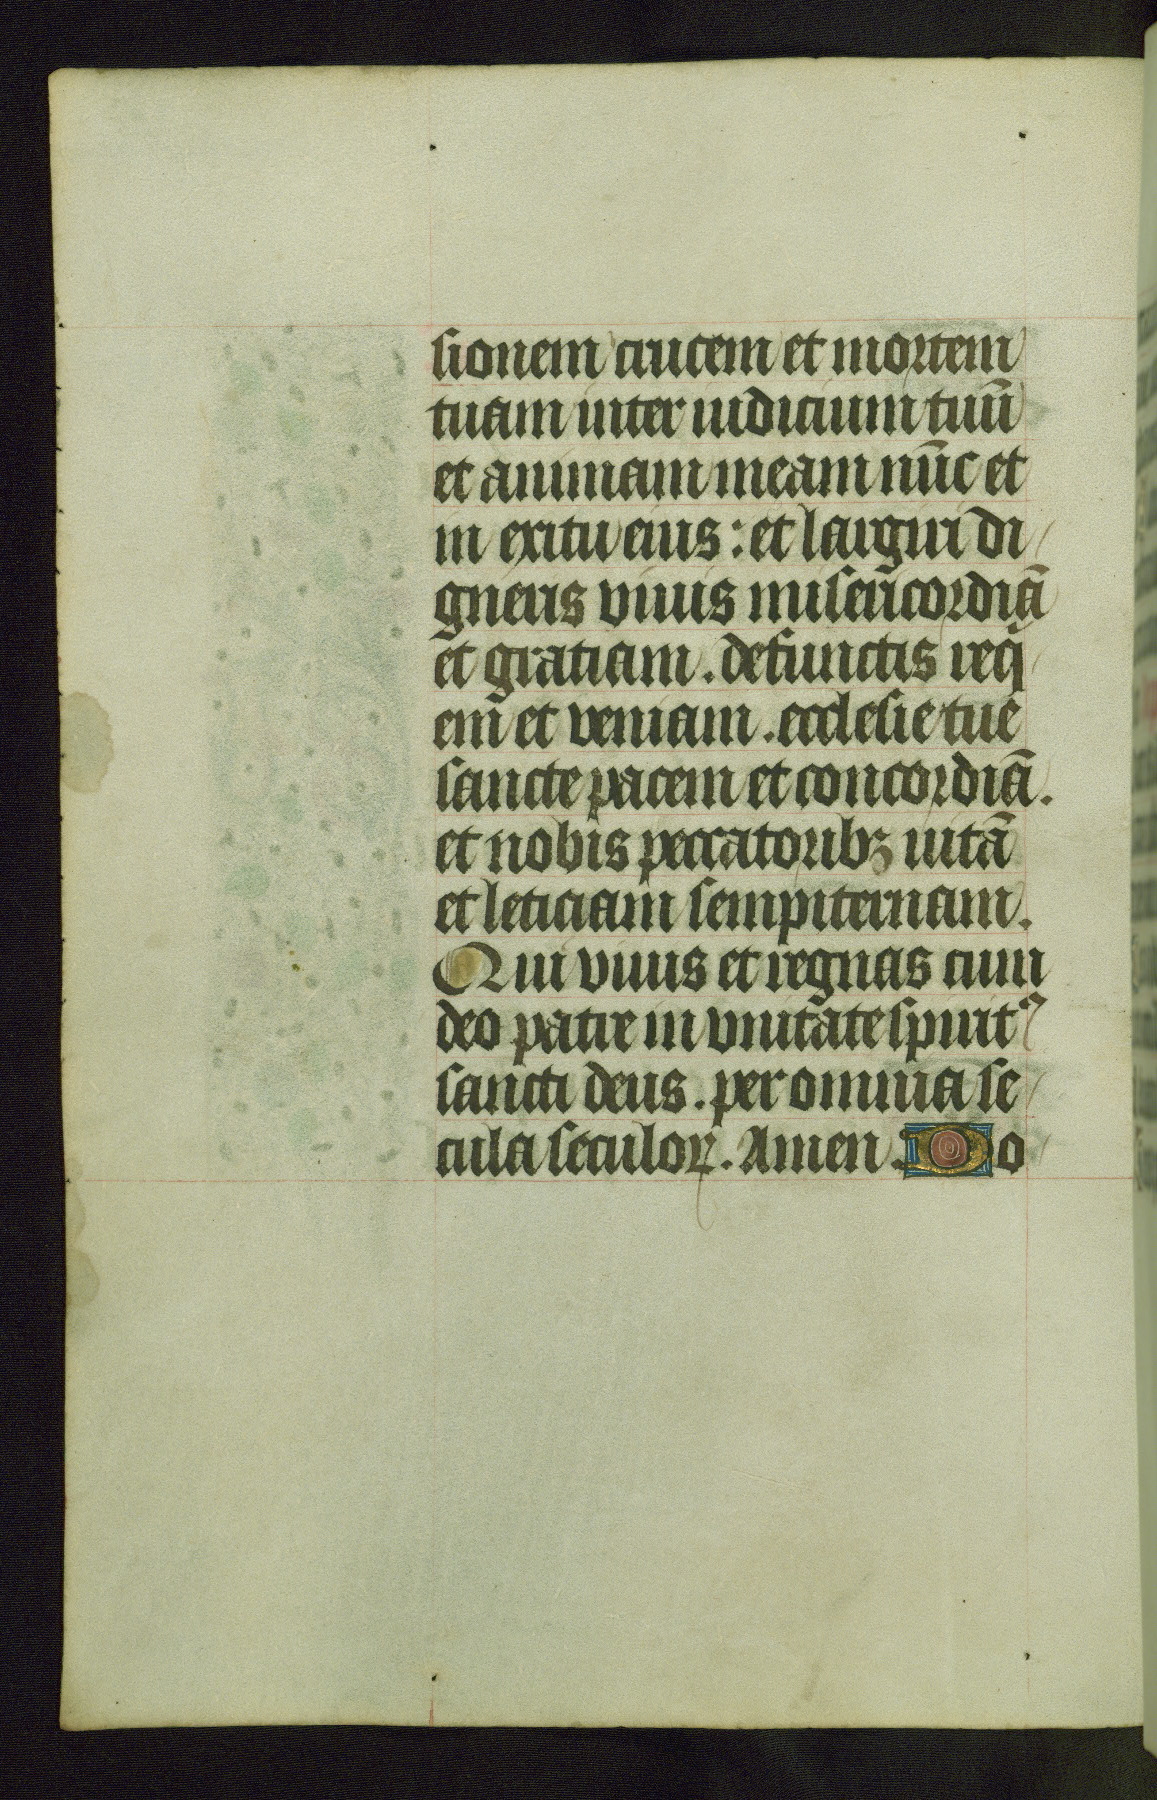 sionem crucem et mortem
tuam inter iudicium tuū
et animam meam nūc et
in exitu eius : et largiri di
gneris viuis misericordiā
et gratiam . defunctis req̄
em et veniam . ecclesie tue
sancte pacem et concordiā .
et nobis peccatoribꝫ uitā
et leticiam sempiternam .
Qui viuis et regnas cum
deo patre in vnitate spirit꒱
sancti deus . per omnia se
cula seculoꝝ . Amen . Do